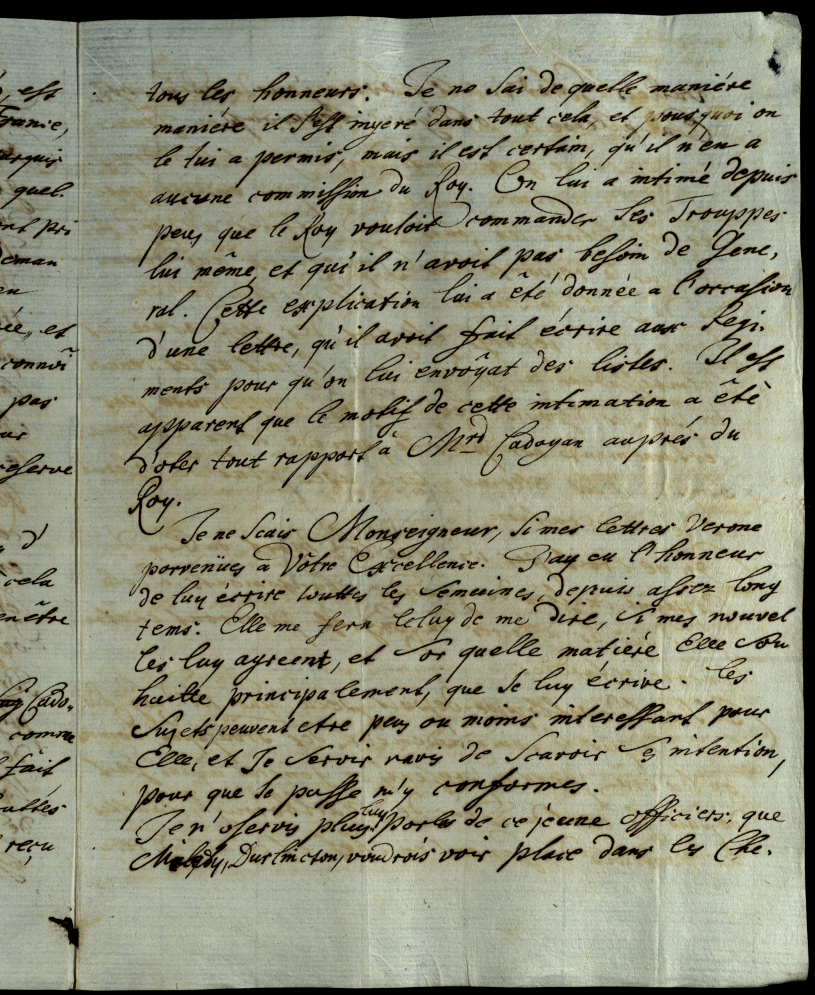 est
France,
arquis
quel
ent pri
deman
en
ée, et
connoi
pas
reserve
d'
cela
en être
Cado,
comme
fait
reçu
tous les honneurs. Je ne sai de quelle maniére
maniére il s'est ingeré dans tout cela, et pourquoi on
le lui a permis, mais il est certain, qu'il n'en a
aucune commission du Roy. On lui a intimé depuis
peu, que le Roy vouloit commander ses Trouppes
lui même, et qu'il n'avoit pas besoin de Gene,
ral. Cette explication lui a êté donnée a l'occasion
d'une lettre, qu'il avoit fait écrire aux Regi.
ments pour qu'on lui envoÿat des listes. Il est
apparent que le motif de cette intimation a êté
d'oter tout rapport à Mrd Cadogan auprés du
Roy.
Je ne scais Monseigneur, si mes lettres Verone
parvenües a Vôtre Excellence. J'ay eu l'honneur
de luy écrire touttes les semeines, depuis assez long
tems. Elle me fera celuy de me dire, si mes nouvel
les luy agreent, et sor quelle matiére Elle sou
haitte principalement, que Je luy écrive. les
sujets peuvent etre peu, ou moins interessant pour
Elle, et Je serois ravis de scavoir ses intention,
pour que Je puisse m'y conformer.
Je n'oserois plus luy Parler de ce jeune officiers, que
Milady, Durlincton, voudrois voir place dans les Che.